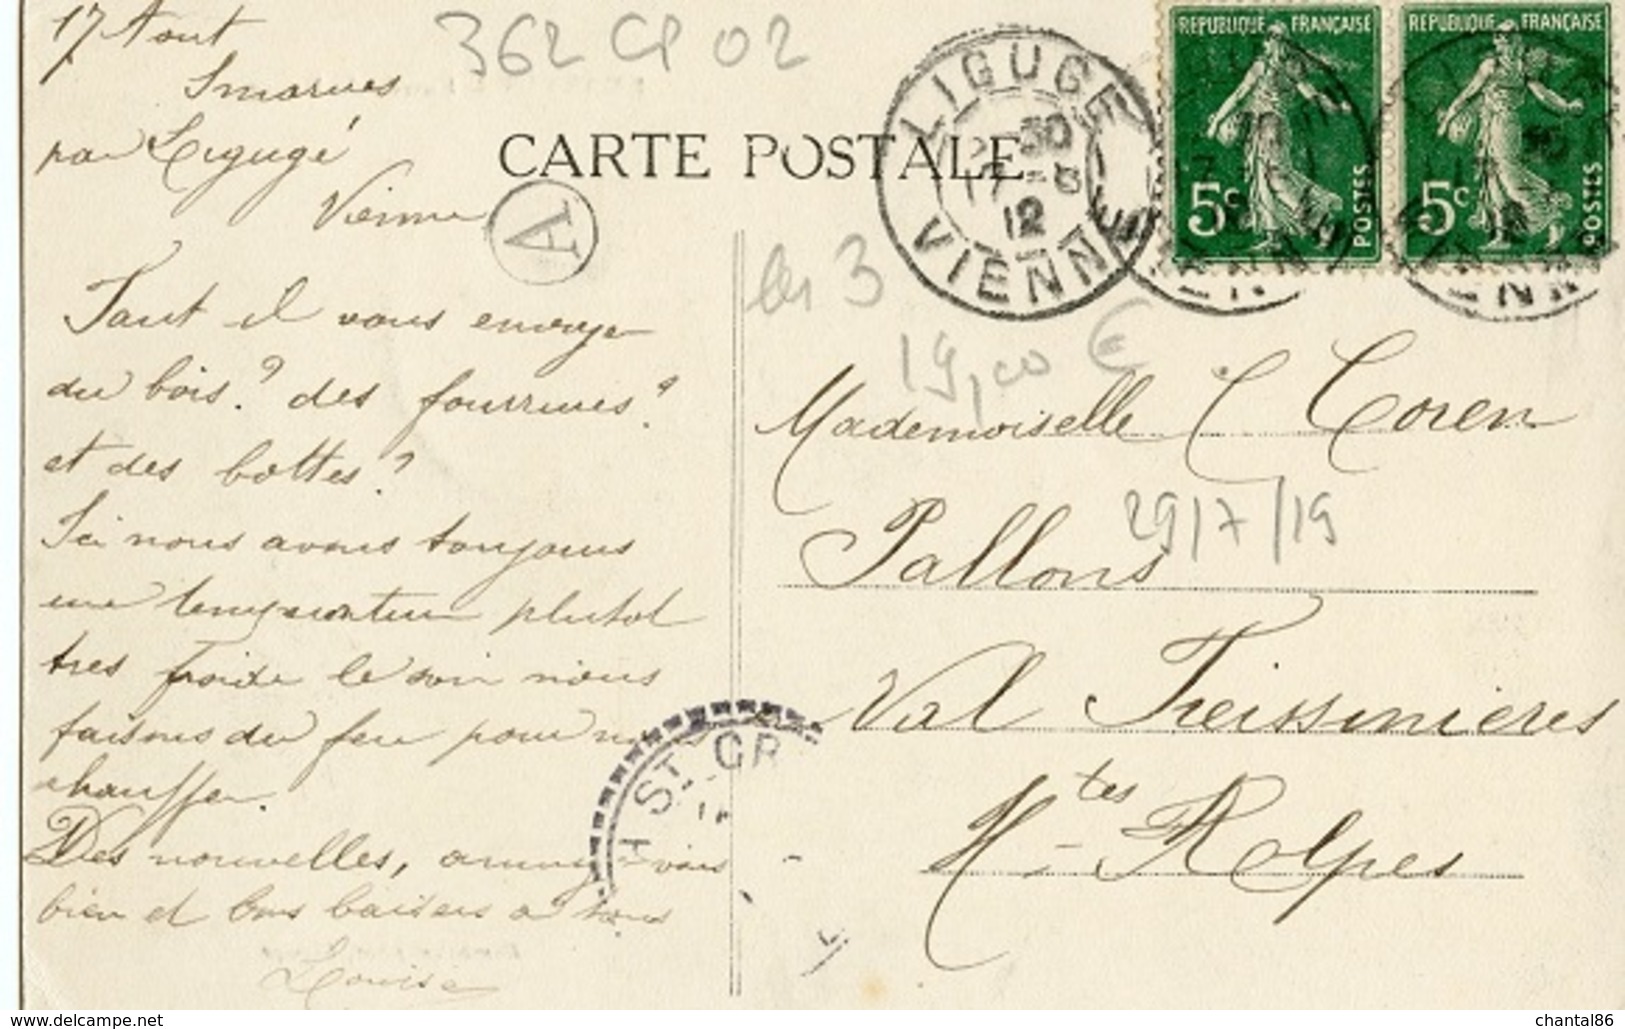 17 Aout
Smarves
par Ligugé
Vienne
362 CP 02
CARTE POSTALE
A
LIGUGE
30
17 -8
12
VIENNE
REPUBLIQUE FRANÇAISE
5c
POSTES
REPUBLIQUE FRANÇAISE
5c
POSTES
Faut il vous envoyer
du bois? des fourrures?
et des bottes?
Ici nous avons toujours
une temperature plutot
tres froide le soir nous
faisons du feu pour nous
chauffer.
Des nouvelles, amusez-vous
bien et bons baisers a tous
Louise
3
19,00 €
Mademoiselle C Coren
29/7/19
Pallons
Val Freissinières
Htes-Alpes
ST CR
chantal86
www.delcampe.net